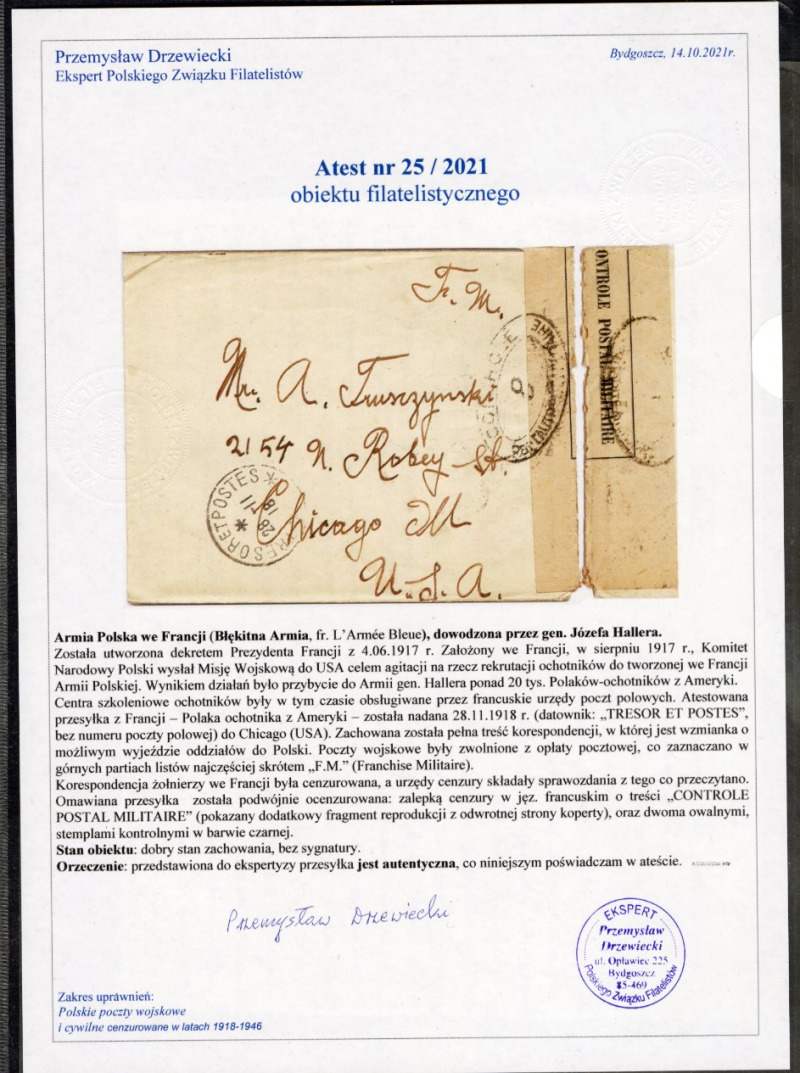 Przemysław Drzewiecki
Ekspert Polskiego Związku Filatelistów
Bydgoszcz, 14.10.2021r.
Atest nr 25 / 2021
obiektu filatelistycznego
Fr. M.
Mr. A. Tuszczynski
2154 N. Robey St.
Chicago Ill
U.S.A.
TRESOR ET POSTES
28 11 18
CONTROLE POSTAL MILITAIRE
Armia Polska we Francji (Błękitna Armia, fr. L'Armée Bleue), dowodzona przez gen. Józefa Hallera.
Została utworzona dekretem Prezydenta Francji z 4.06.1917 r. Założony we Francji, w sierpniu 1917 r., Komitet
Narodowy Polski wysłał Misję Wojskową do USA celem agitacji na rzecz rekrutacji ochotników do tworzonej we Francji
Armii Polskiej. Wynikiem działań było przybycie do Armii gen. Hallera ponad 20 tys. Polaków-ochotników z Ameryki.
Centra szkoleniowe ochotników były w tym czasie obsługiwane przez francuskie urzędy poczt polowych. Atestowana
przesyłka z Francji – Polaka ochotnika z Ameryki – została nadana 28.11.1918 r. (datownik: „TRESOR ET POSTES”,
bez numeru poczty polowej) do Chicago (USA). Zachowana została pełna treść korespondencji, w której jest wzmianka o
możliwym wyjeździe oddziałów do Polski. Poczty wojskowe były zwolnione z opłaty pocztowej, co zaznaczano w
górnych partiach listów najczęściej skrótem „F.M.” (Franchise Militaire).
Korespondencja żołnierzy we Francji była cenzurowana, a urzędy cenzury składały sprawozdania z tego co przeczytano.
Omawiana przesyłka została podwójnie ocenzurowana: zalepką cenzury w jęz. francuskim o treści „CONTROLE
POSTAL MILITAIRE” (pokazany dodatkowy fragment reprodukcji z odwrotnej strony koperty), oraz dwoma owalnymi,
stemplami kontrolnymi w barwie czarnej.
Stan obiektu: dobry stan zachowania, bez sygnatury.
Orzeczenie: przedstawiona do ekspertyzy przesyłka jest autentyczna, co niniejszym poświadczam w ateście.
Przemysław Drzewiecki
EKSPERT
Przemysław
Drzewiecki
ul. Opławiec 225
Bydgoszcz
85-469
Polskiego Związku Filatelistów
Zakres uprawnień:
Polskie poczty wojskowe
i cywilne cenzurowane w latach 1918-1946